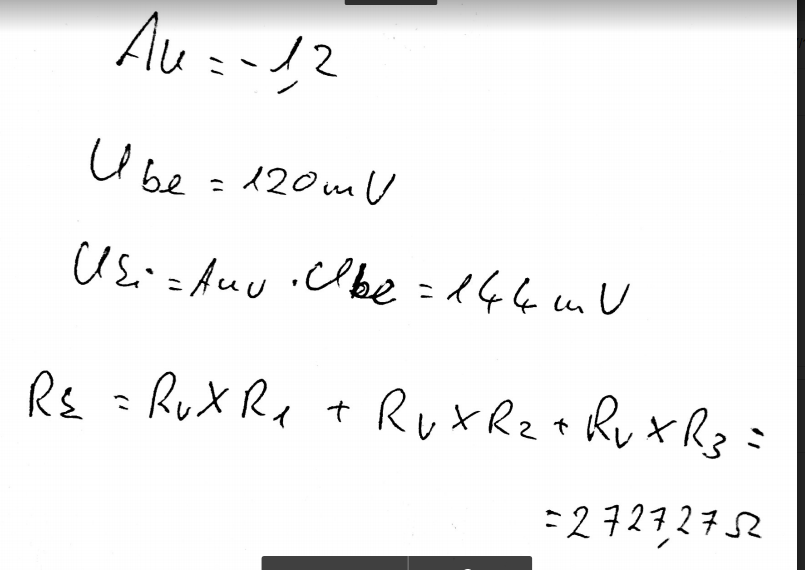 Au = -1,2
Ube = 120mV
UΣi = Auv · Ube = 144 mV
RΣ = RvXR1 + RvXR2 + RvXR3 =
= 2727,27Ω